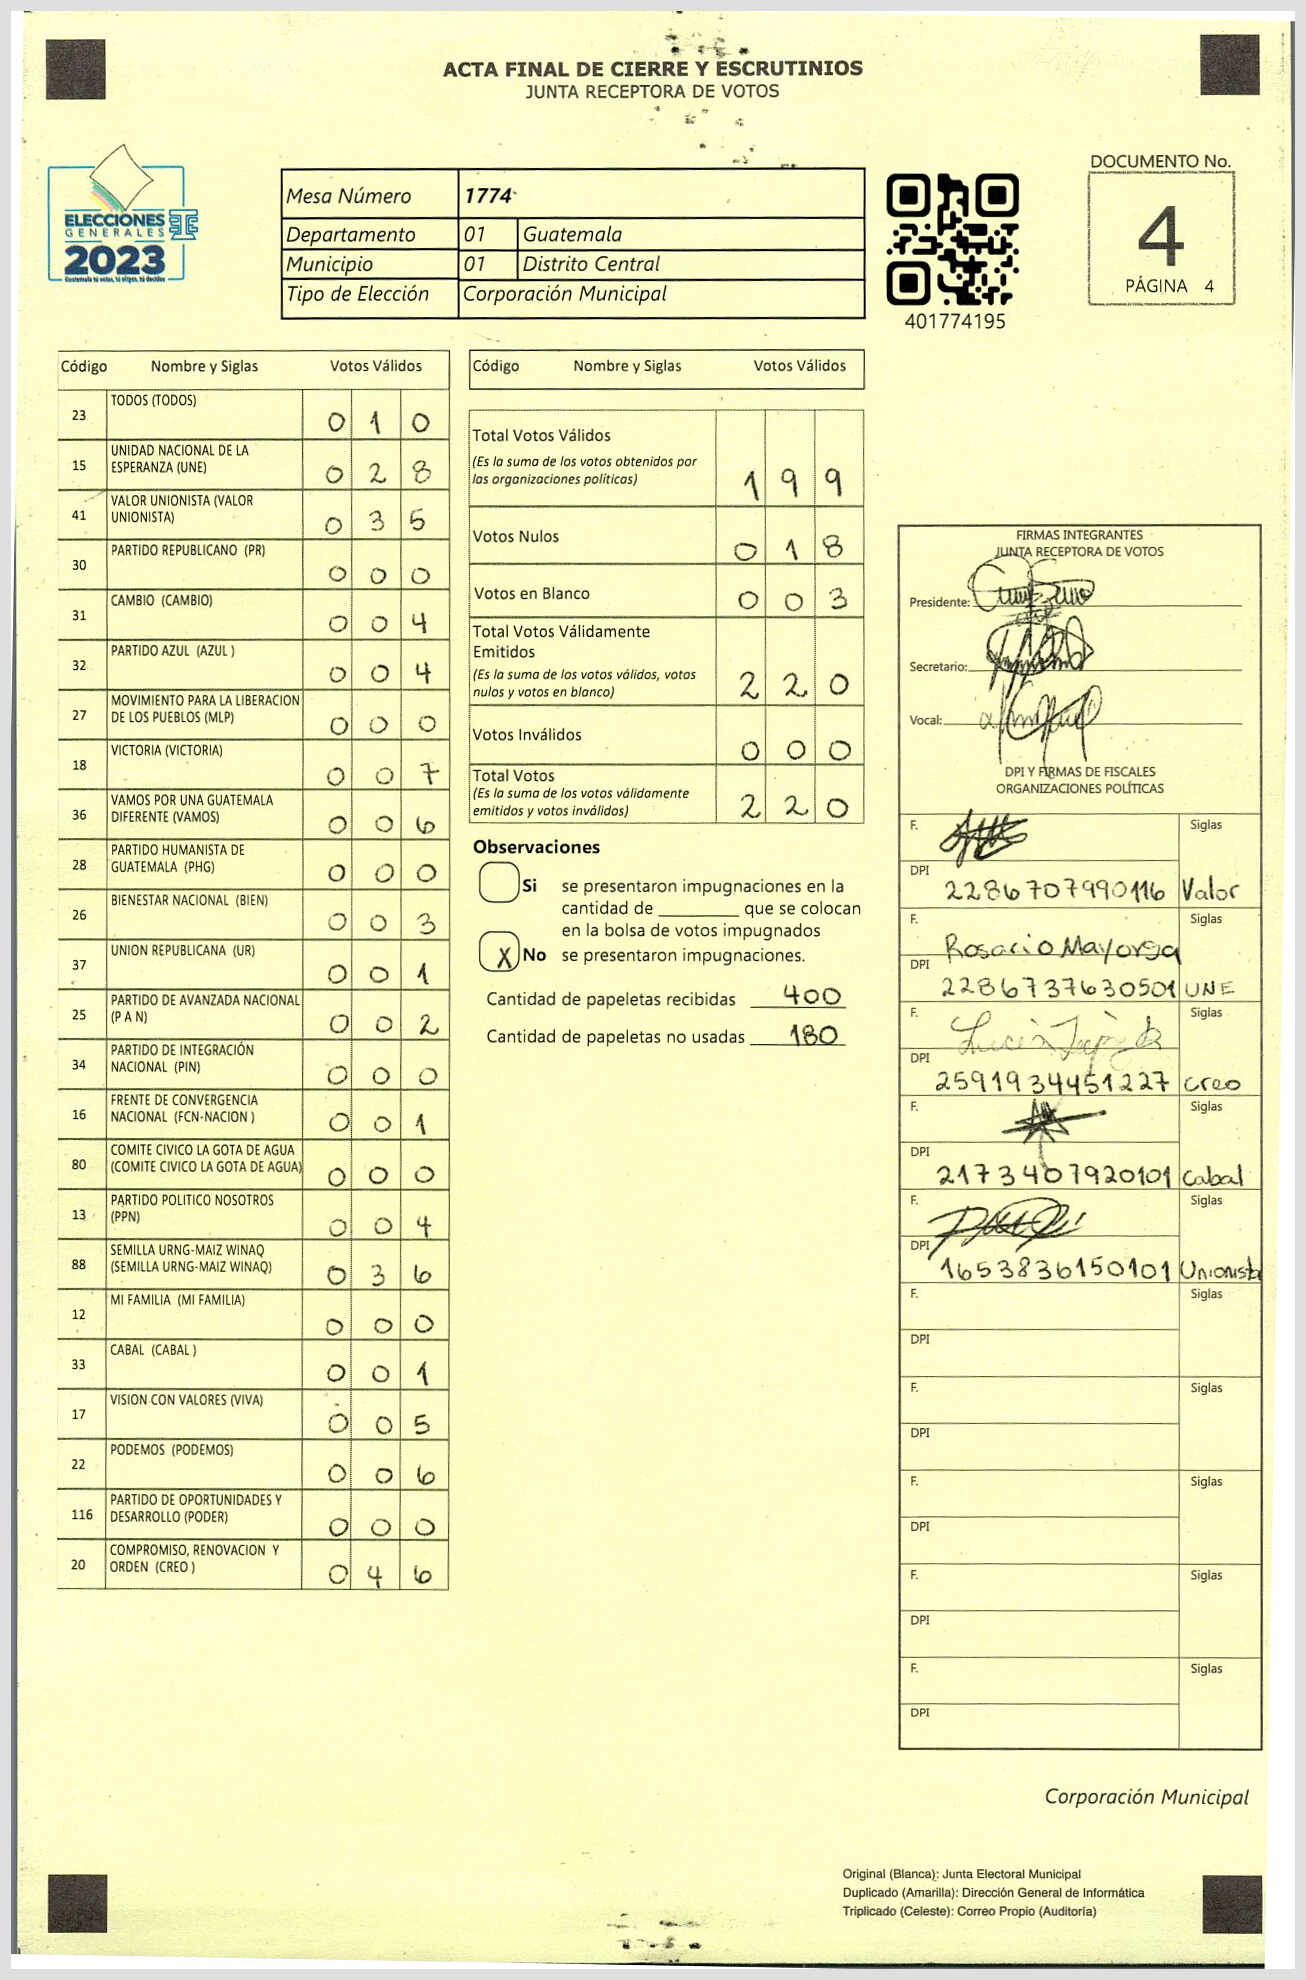 ACTA FINAL DE CIERRE Y ESCRUTINIOS
JUNTA RECEPTORA DE VOTOS
ELECCIONES
GENERALES
2023
Guatemala tú votas, tú eliges, tú decides
Mesa Número 1774
Departamento 01 Guatemala
Municipio 01 Distrito Central
Tipo de Elección Corporación Municipal
401774195
DOCUMENTO No.
4
PÁGINA 4
Código Nombre y Siglas Votos Válidos
23 TODOS (TODOS) 0 1 0
15 UNIDAD NACIONAL DE LA
ESPERANZA (UNE) 0 2 8
41 VALOR UNIONISTA (VALOR
UNIONISTA) 0 3 5
30 PARTIDO REPUBLICANO (PR) 0 0 0
31 CAMBIO (CAMBIO) 0 0 4
32 PARTIDO AZUL (AZUL ) 0 0 4
27 MOVIMIENTO PARA LA LIBERACION
DE LOS PUEBLOS (MLP) 0 0 0
18 VICTORIA (VICTORIA) 0 0 7
36 VAMOS POR UNA GUATEMALA
DIFERENTE (VAMOS) 0 0 6
28 PARTIDO HUMANISTA DE
GUATEMALA (PHG) 0 0 0
26 BIENESTAR NACIONAL (BIEN) 0 0 3
37 UNION REPUBLICANA (UR) 0 0 1
25 PARTIDO DE AVANZADA NACIONAL
(P A N) 0 0 2
34 PARTIDO DE INTEGRACIÓN
NACIONAL (PIN) 0 0 0
16 FRENTE DE CONVERGENCIA
NACIONAL (FCN-NACION ) 0 0 1
80 COMITE CIVICO LA GOTA DE AGUA
(COMITE CIVICO LA GOTA DE AGUA) 0 0 0
13 PARTIDO POLITICO NOSOTROS
(PPN) 0 0 4
88 SEMILLA URNG-MAIZ WINAQ
(SEMILLA URNG-MAIZ WINAQ) 0 3 6
12 MI FAMILIA (MI FAMILIA) 0 0 0
33 CABAL (CABAL ) 0 0 1
17 VISION CON VALORES (VIVA) 0 0 5
22 PODEMOS (PODEMOS) 0 0 6
116 PARTIDO DE OPORTUNIDADES Y
DESARROLLO (PODER) 0 0 0
20 COMPROMISO, RENOVACION Y
ORDEN (CREO ) 0 4 6
Código Nombre y Siglas Votos Válidos
Total Votos Válidos
(Es la suma de los votos obtenidos por
las organizaciones políticas) 1 9 9
Votos Nulos 0 1 8
Votos en Blanco 0 0 3
Total Votos Válidamente
Emitidos
(Es la suma de los votos válidos, votos
nulos y votos en blanco) 2 2 0
Votos Inválidos 0 0 0
Total Votos
(Es la suma de los votos válidamente
emitidos y votos inválidos) 2 2 0
Observaciones
Si se presentaron impugnaciones en la
cantidad de ________ que se colocan
en la bolsa de votos impugnados
X No se presentaron impugnaciones.
Cantidad de papeletas recibidas 400
Cantidad de papeletas no usadas 180
FIRMAS INTEGRANTES
JUNTA RECEPTORA DE VOTOS
Presidente:
Secretario:
Vocal:
DPI Y FIRMAS DE FISCALES
ORGANIZACIONES POLÍTICAS
F. Siglas
DPI 2286707990116 Valor
F. Rosario Mayorga Siglas
DPI 2286737630501 UNE
F. Siglas
DPI 2591934451227 Creo
F. Siglas
DPI 2173407920101 Cabal
F. Siglas
DPI 1653836150101 Unionista
F. Siglas
DPI
F. Siglas
DPI
F. Siglas
DPI
F. Siglas
DPI
F. Siglas
DPI
Corporación Municipal
Original (Blanca): Junta Electoral Municipal
Duplicado (Amarilla): Dirección General de Informática
Triplicado (Celeste): Correo Propio (Auditoría)